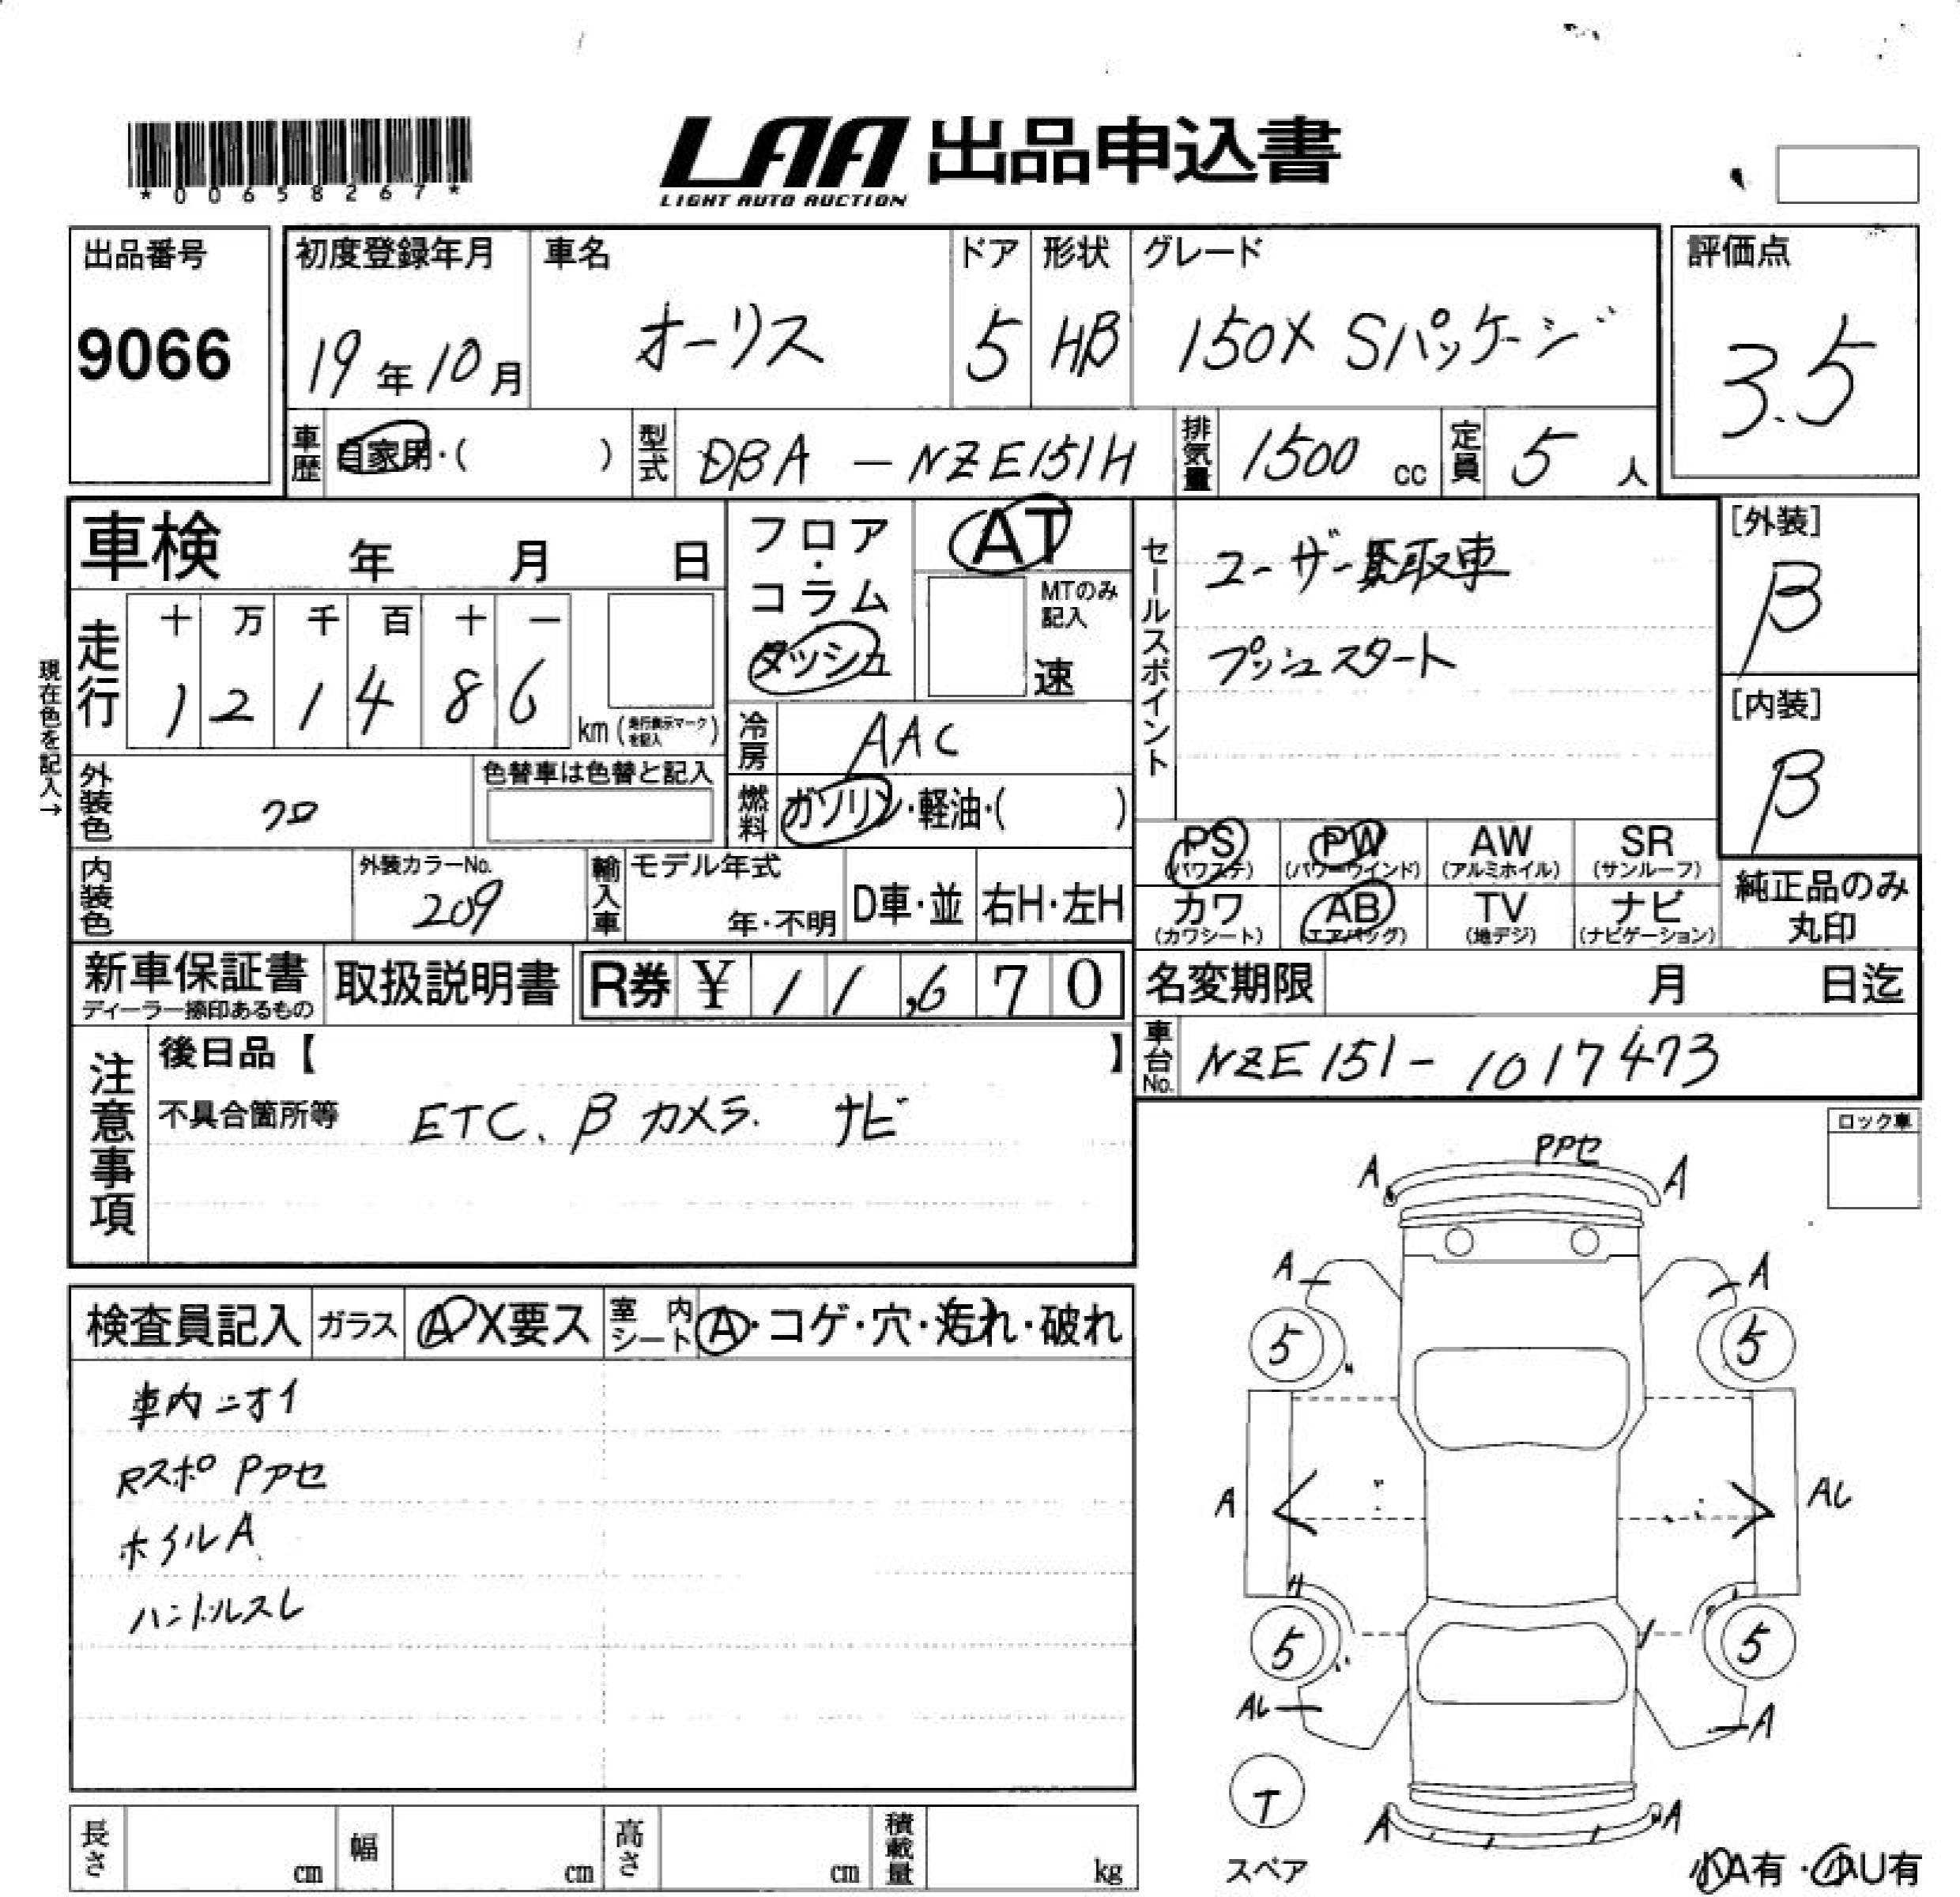 *00658267*
LAA 出品申込書
LIGHT AUTO AUCTION
出品番号
9066
初度登録年月
19年10月
車名
オーリス
ドア
5
形状
HB
グレード
150X Sパッケージ
評価点
3.5
車歴
自家用・( )
型式
DBA - NZE151H
排気量
1500 cc
定員
5 人
車検 年 月 日
走行
十 万 千 百 十 一
1 2 1 4 8 6
km (走行表示マークを記入)
現在色を記入→
外装色
クロ
色替車は色替と記入
フロア・コラム
ダッシュ
AT
MTのみ記入
速
冷房
AAC
燃料
ガソリン・軽油・( )
セールスポイント
ユーザー買取車
プッシュスタート
[外装]
β
[内装]
β
PS
(パワステ)
PW
(パワーウインド)
AW
(アルミホイル)
SR
(サンルーフ)
カワ
(カワシート)
AB
(エアバッグ)
TV
(地デジ)
ナビ
(ナビゲーション)
純正品のみ
丸印
内装色
外装カラーNo.
209
輸入車
モデル年式
年・不明
D車・並
右H・左H
新車保証書
ディーラー捺印あるもの
取扱説明書
R券 ¥ 11,670
名変期限 月 日迄
車台No.
NZE151-1017473
注意事項
後日品【 】
不具合箇所等
ETC. β カメラ. ナビ
ロック車
検査員記入
ガラス
A X要ス
室内シート
A・コゲ・穴・汚れ・破れ
車内ニオイ
Rスポ Pアセ
ホイルA
ハンドルスレ
PPセ
A A
A A
5 5
A AL
5 5
AL A
T
スペア
A A
小A有・小U有
長さ cm
幅 cm
高さ cm
積載量 kg